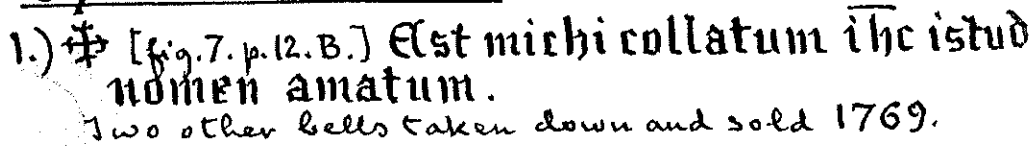 1.) ✠ [fig. 7. p. 12. B.] Est michi collatum ihc istud
nomen amatum.
Two other bells taken down and sold 1769.